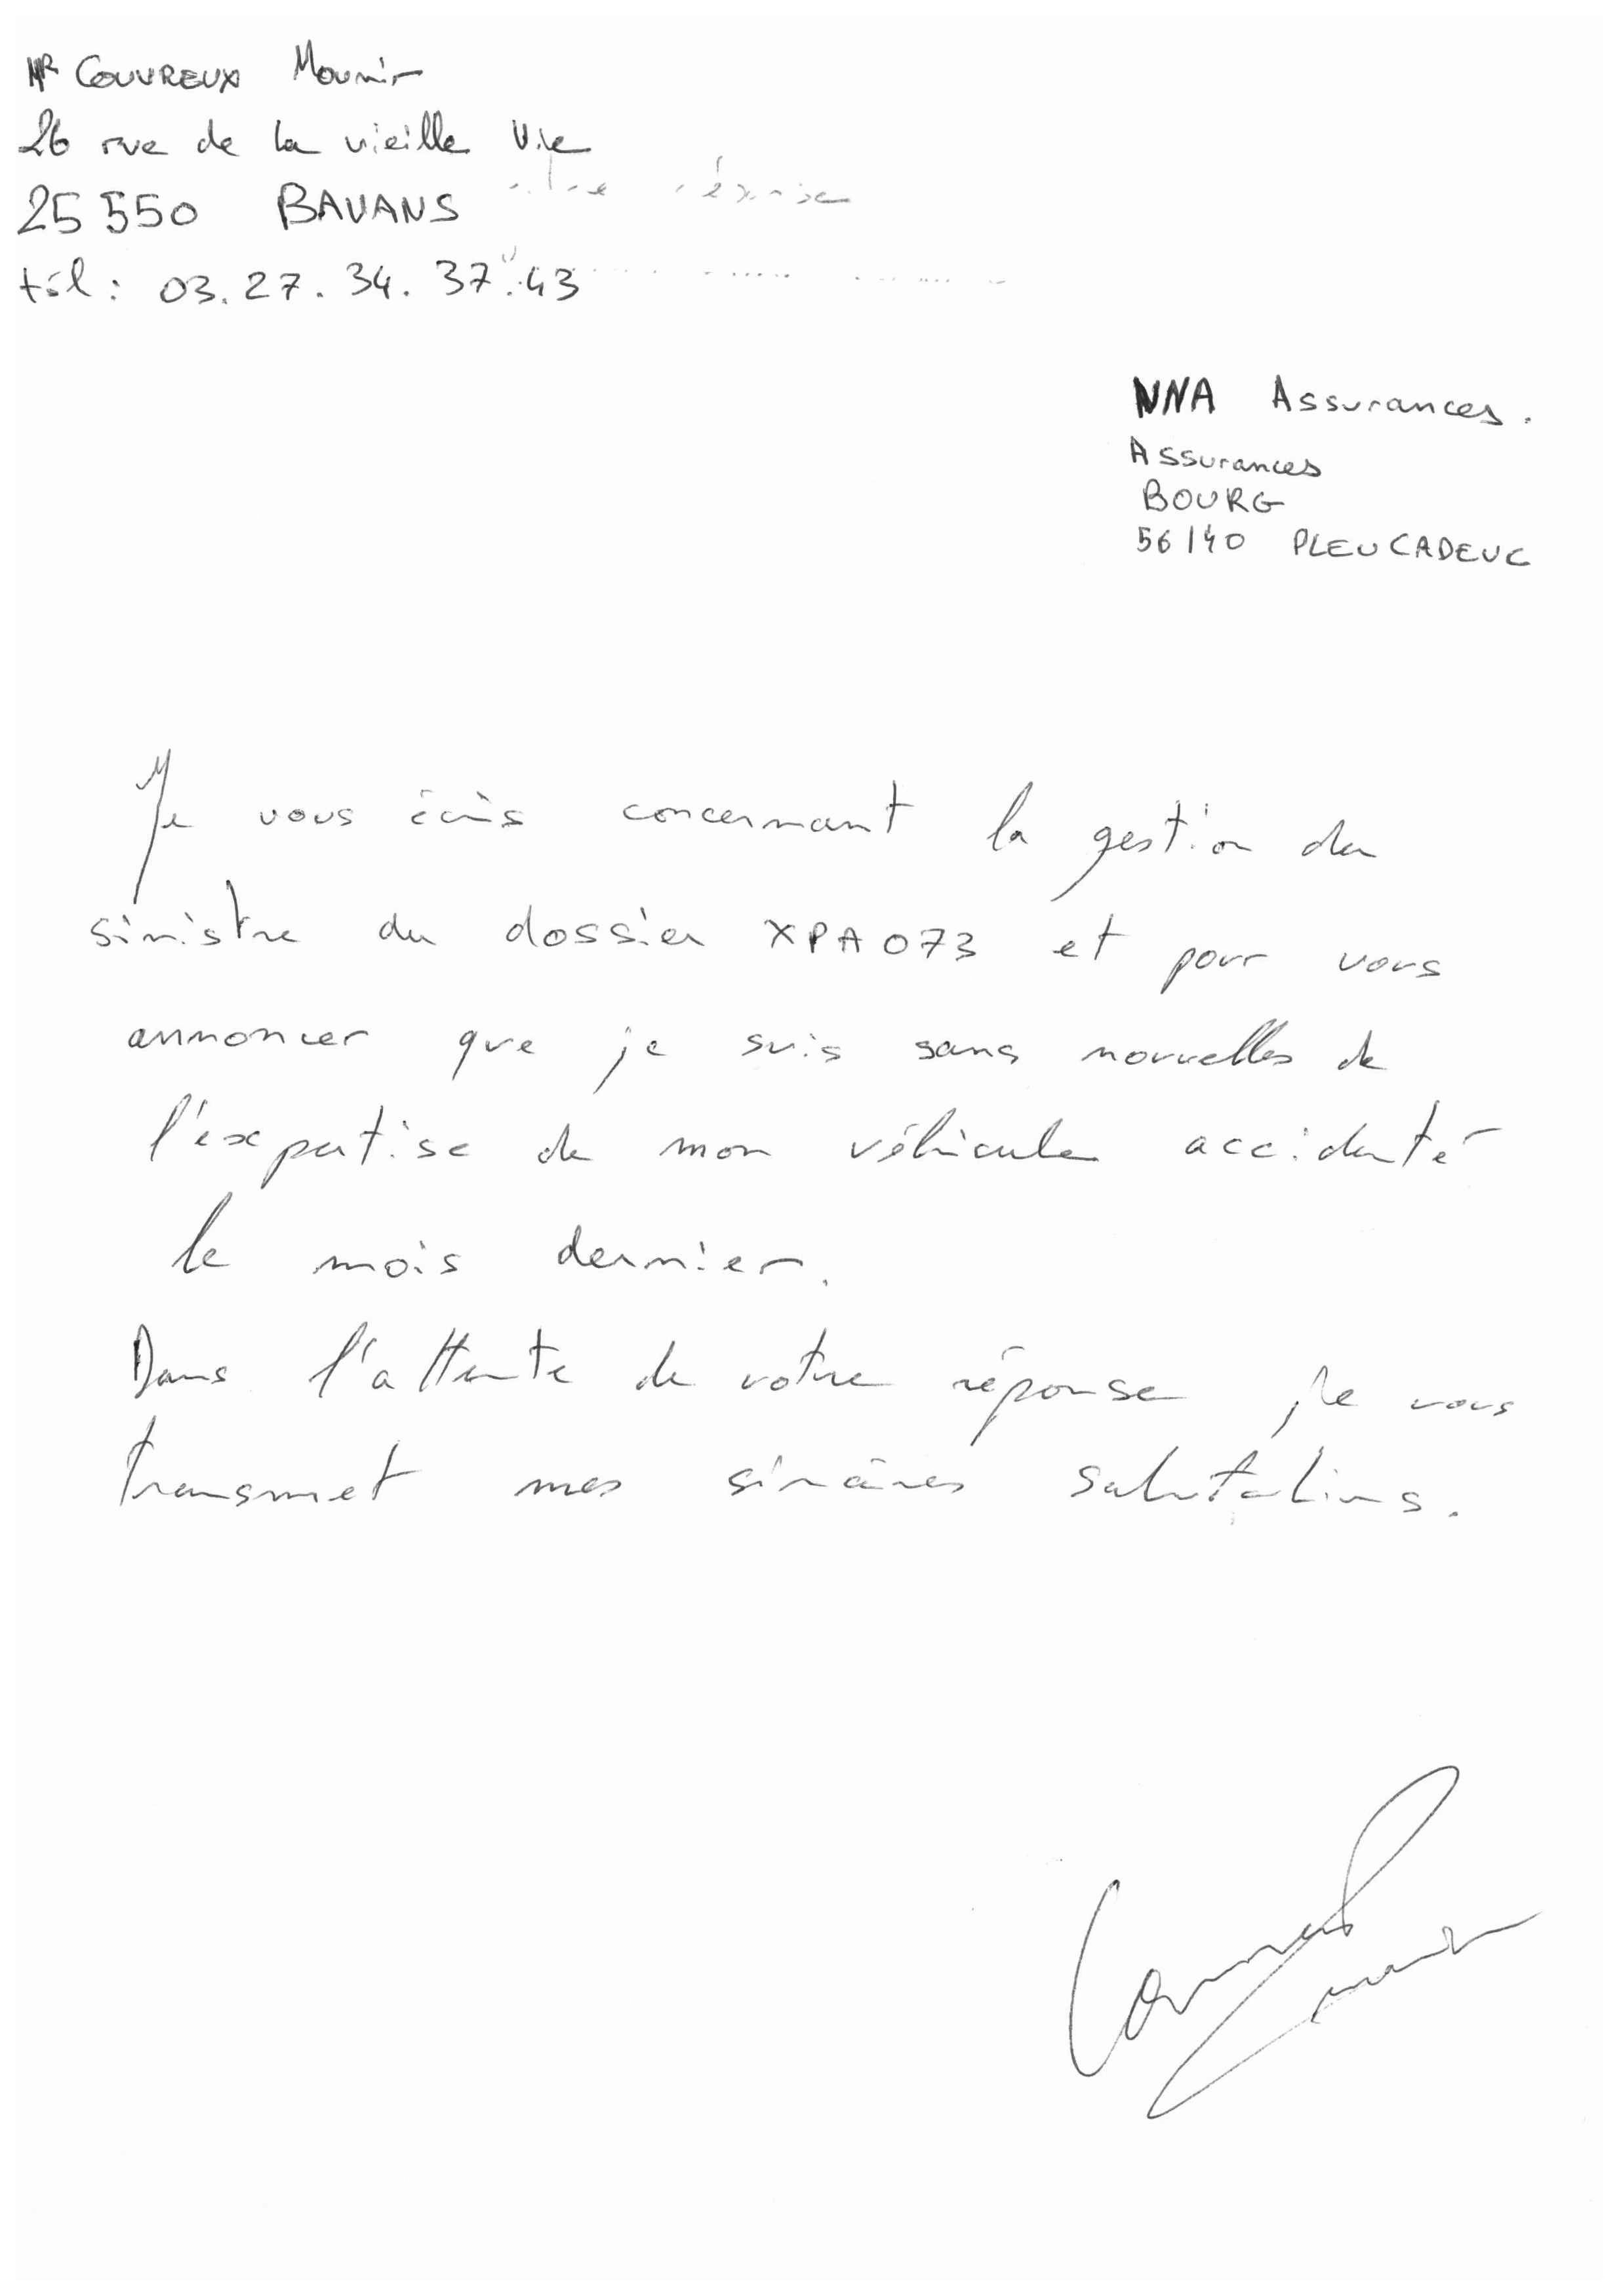 MR COUVREUX Mounir
26 rue de la vieille Vie
25 550 BAVANS
tél : 03.27.34.37.43
NNA Assurances.
Assurances
BOURG
56140 PLEUCADEUC
Je vous écris concernant la gestion du
sinistre du dossier XPA073 et pour vous
annoncer que je suis sans nouvelles de
l'éxpertise de mon véhicule accidenté
le mois dernier.
Dans l'attente de votre réponse je vous
transmet mes sincères salutations.